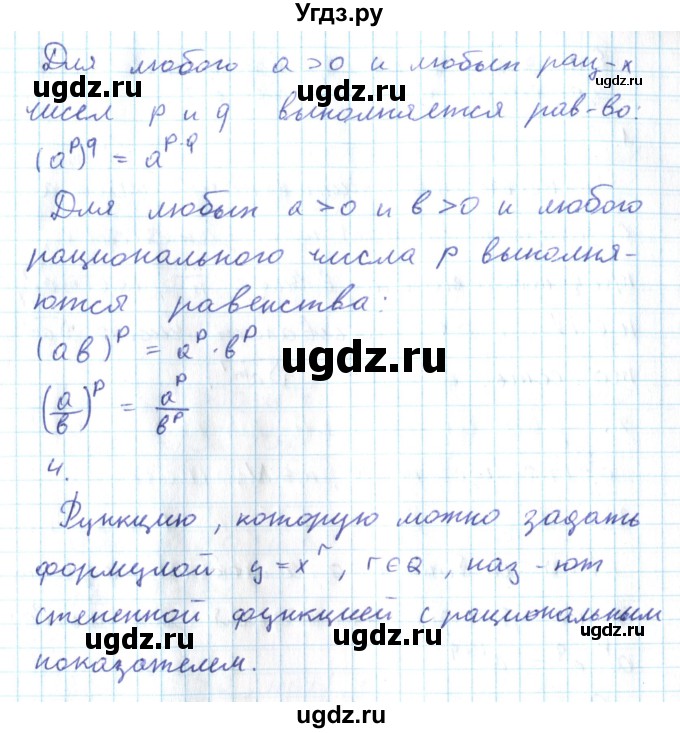 Угдз.ру
Для любого a > 0 и любых рац-х
чисел p и q выполняется рав-во:
(a^p)^q = a^{p·q}
Для любых a > 0 и b > 0 и любого
рационального числа p выполня-
ются равенства:
(ab)^p = a^p · b^p
(a/b)^p = a^p/b^p
4.
Функцию, которую можно задать
формулой y = x^r, r ∈ Q, наз-ют
степенной функцией с рациональным
показателем.
ugdz.ru
ugdz.ru
ugdz.ru
ugdz.ru
ugdz.ru
ugdz.ru
ugdz.ru
ugdz.ru
ugdz.ru